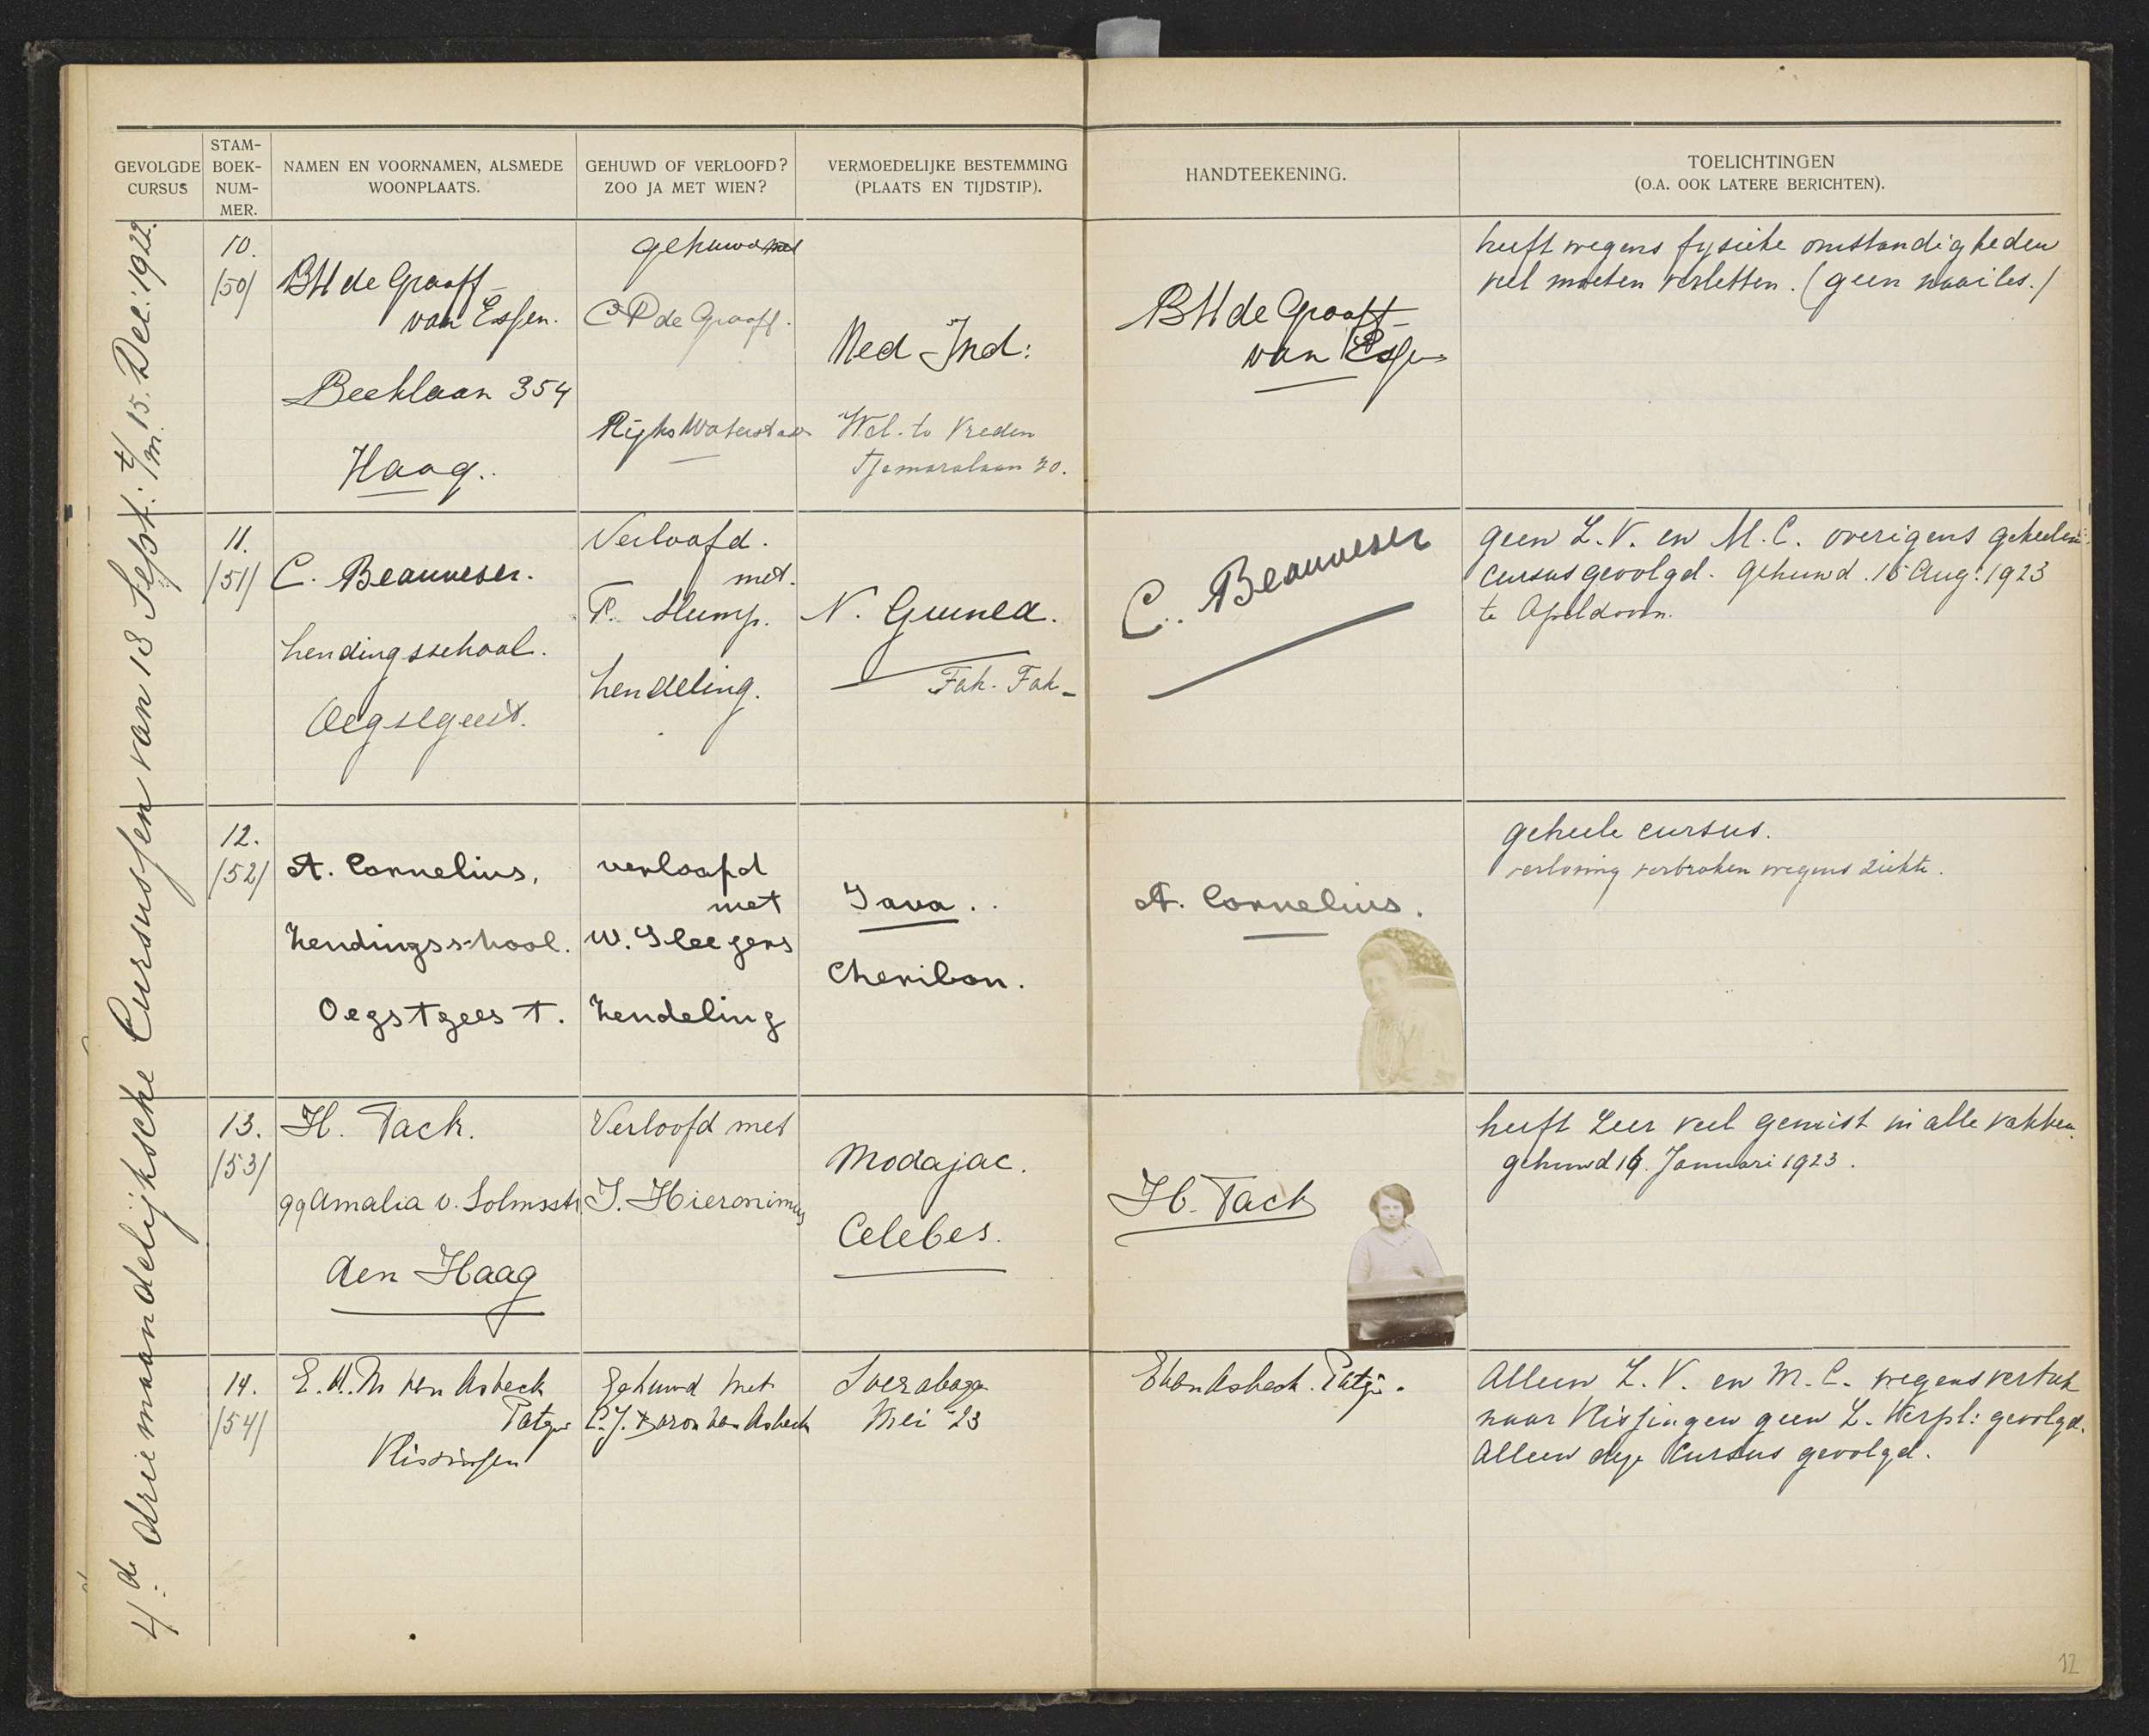 GEVOLGDE CURSUS
STAM-BOEK-NUM-MER.
NAMEN EN VOORNAMEN, ALSMEDE WOONPLAATS.
GEHUWD OF VERLOOFD? ZOO JA MET WIEN?
VERMOEDELIJKE BESTEMMING (PLAATS EN TIJDSTIP).
HANDTEEKENING.
TOELICHTINGEN (O.A. OOK LATERE BERICHTEN).
4/de driemaandelijksche Cursussen van 18 Sept: t/m 15. Dec: 1922.
10.
/50/
BH de Graaff-
van Essen.
Beeklaan 354
Haag.
gehuwd met
C P de Graaff.
Rijks Waterstaat
Ned Ind:
Wel. te Vreden
Tjemaralaan 20.
BH de Graaff-
van Essen
heeft wegens fysieke omstandigheden
veel moeten verletten. (geen naailes.)
11.
/51/
C. Beauveser.
Zendingsschool.
Oegstgeest.
Verloofd.
met.
F. Slump.
Zendeling.
N. Guinea.
Fak-Fak-
C. Beauveser
geen L.V. en M.C. overigens geheelen
cursus gevolgd. Gehuwd 15 Aug: 1923
te Apeldoorn.
12.
/52/
A. Cornelius.
Zendingsschool.
Oegstgeest.
verloofd
met
W. Sleegers
Zendeling
Java..
Cheribon.
A. Cornelius.
geheele cursus.
verloving verbroken wegens ziekte.
13.
/53/
H. Tack.
99 Amalia v. Solmsstr.
den Haag
Verloofd met
J. Hieronimus
Modajac.
Celebes.
H. Tack
heeft zeer veel gemist in alle vakken.
gehuwd 19. Januari 1923.
14.
/54/
E. H. M van Asbeck
Vlissingen
Gehuwd met
C.J. Baron van Asbeck
Soerabaya
Mei '23
EvanAsbeck.
Alleen L.V. en M.C. wegens vertrek
naar Vlissingen geen L. Verpl: gevolgd.
Alleen deze Cursus gevolgd.
12